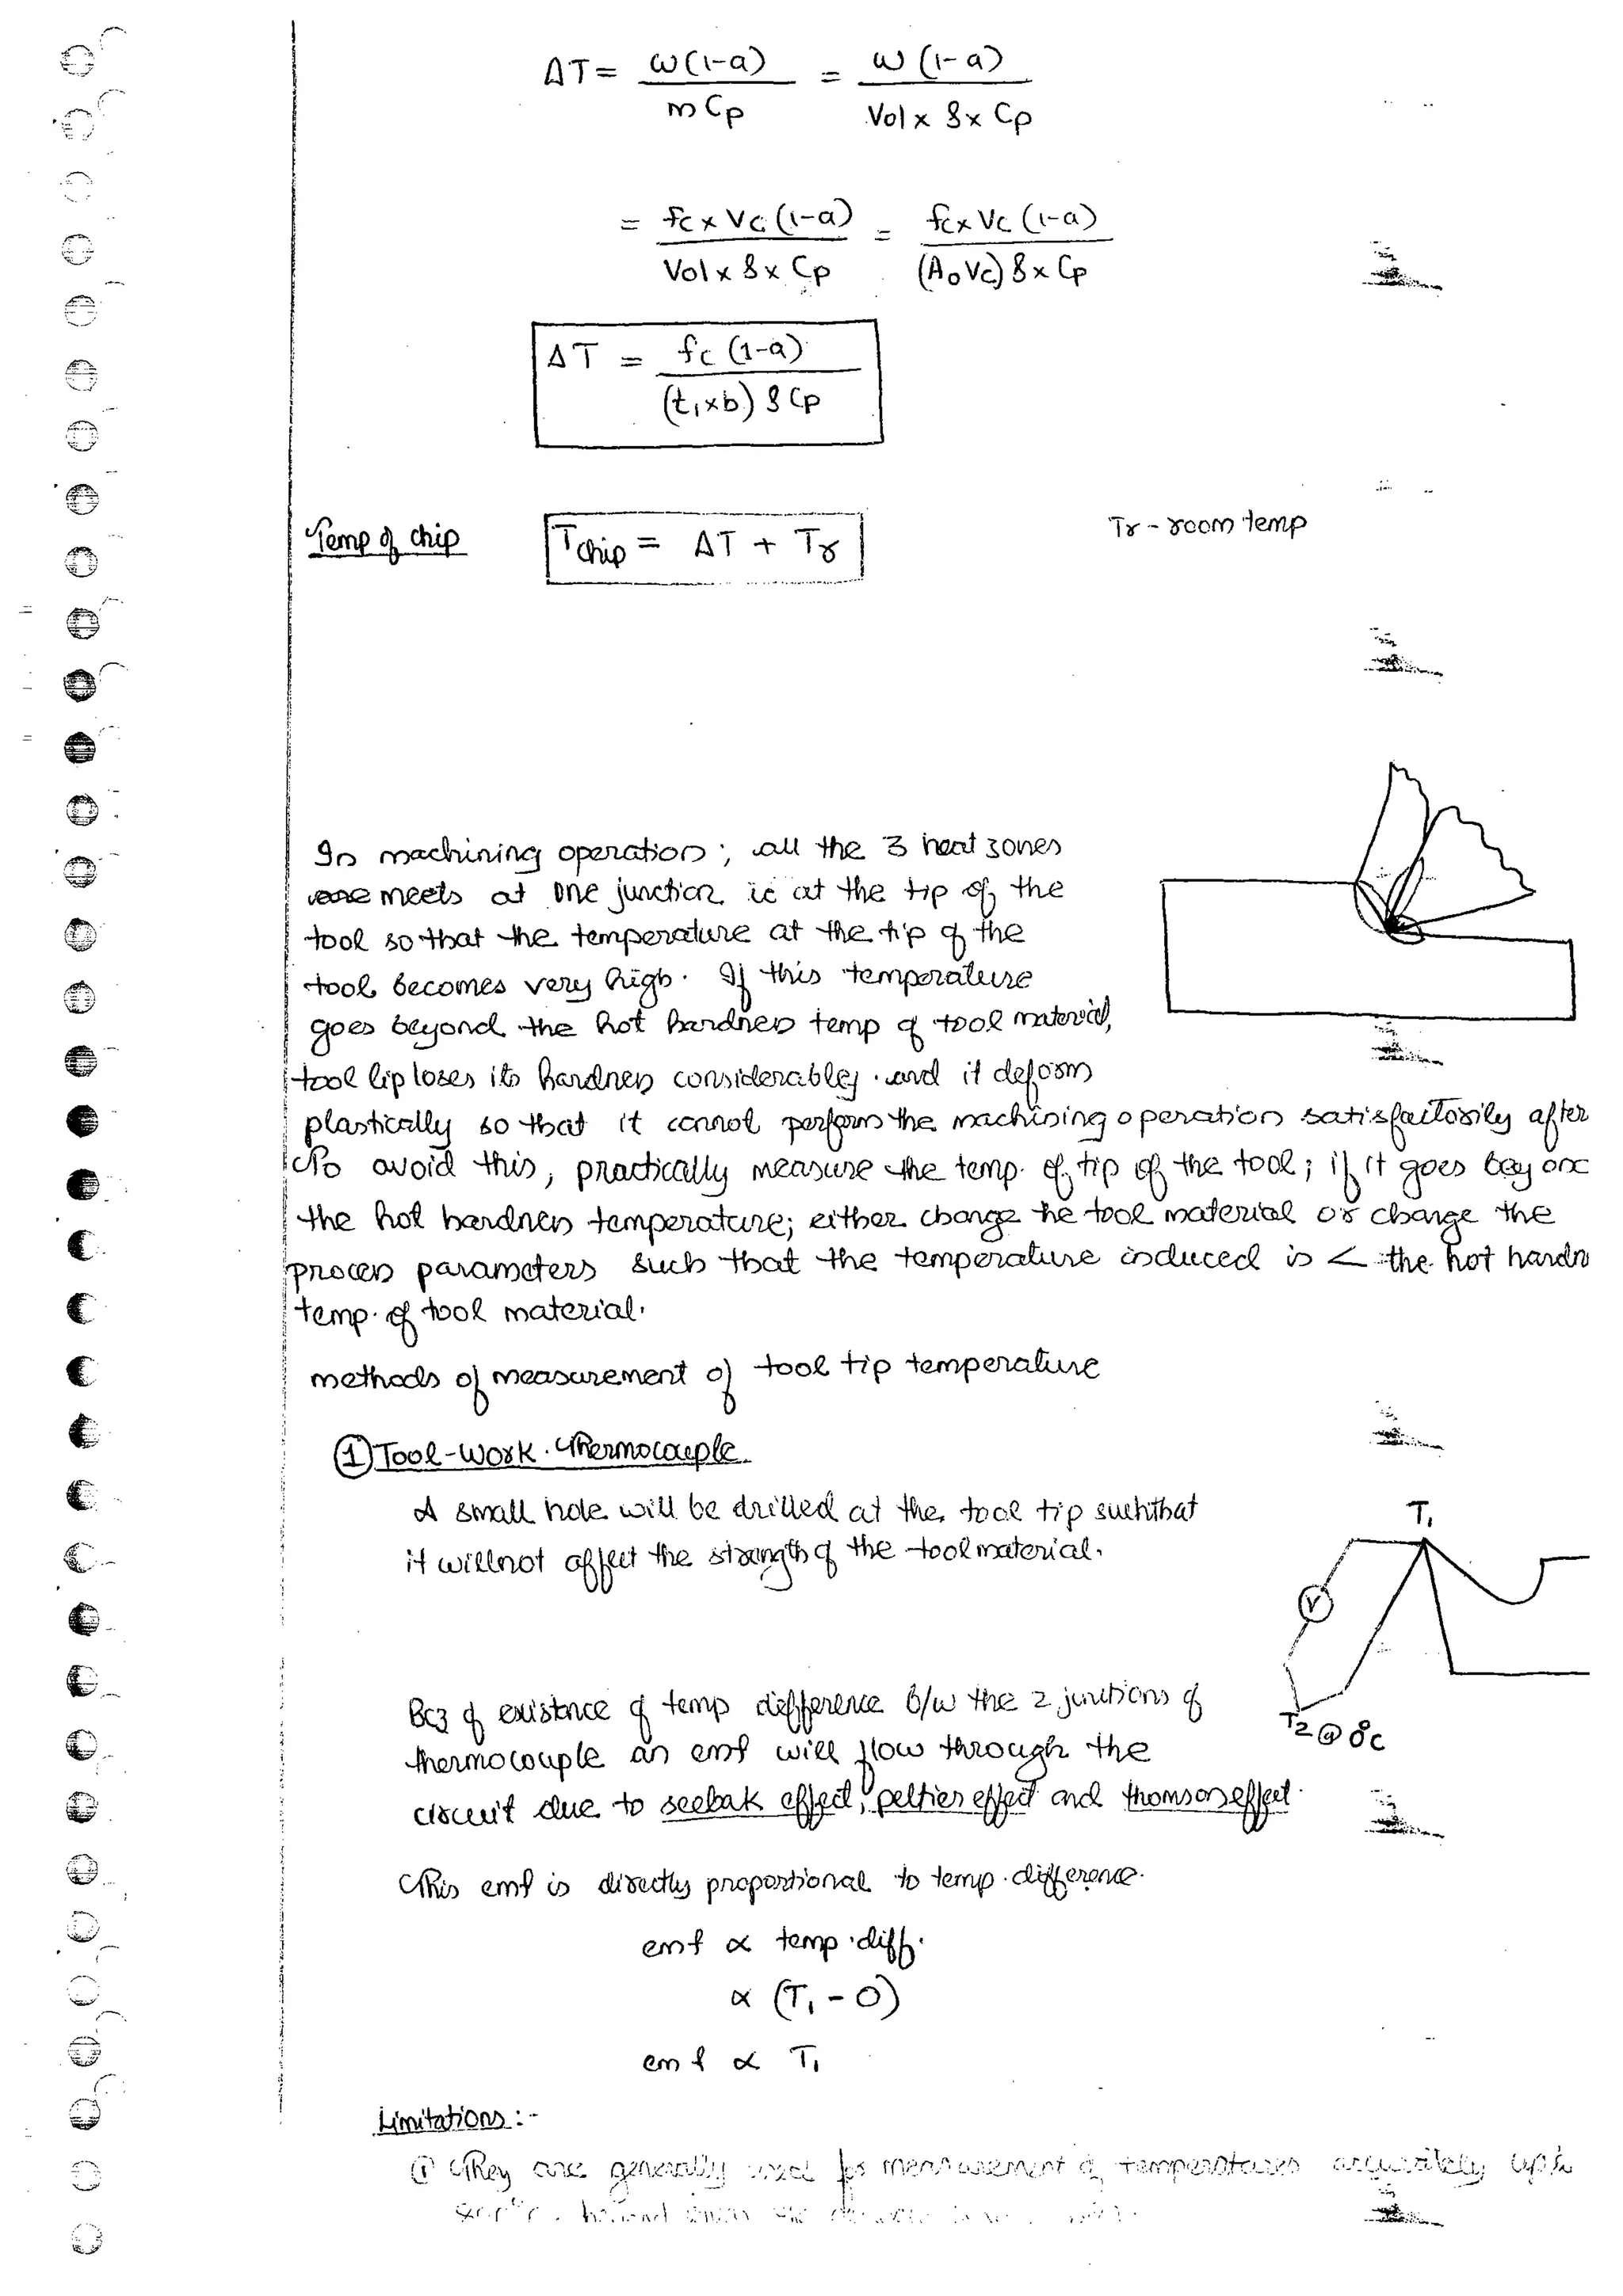 ΔT = w(1-a) / m Cp = w(1-a) / Vol x ρ x Cp
= fc x Vc (1-a) / Vol x ρ x Cp = fc x Vc (1-a) / (A₀Vc) ρ x Cp
ΔT = fc (1-a) / (t₁xb) ρ Cp
Temp of chip Tchip = ΔT + Tr Tr - room temp
In machining operation; all the 3 heat zones
meets at one junction ie at the tip of the
tool so that the temperature at the tip of the
tool becomes very high. If this temperature
goes beyond the hot hardness temp of tool material,
tool lip loses its hardness considerabley and it deform
plastically so that it cannot perform the machining operation satisfactorily after
To avoid this, practically measure the temp. of tip of the tool; if it goes beyon
the hot hardness temperature; either change he tool material or change the
process parameters such that the temperature induced is < the hot hardn
temp. of tool material.
methods of measurement of tool tip temperature
① Tool-Work Thermocouple
A small hole will be drilled at the tool tip such that
it will not affect the strength of the tool material.
T₁
V
T2 @ 0°C
Bcz of existence of temp difference b/w the 2 junctions of
thermocouple an emf will flow through the
circuit due to seebak effect, peltier effect and thomson effect.
This emf is directly proportional to temp. difference.
emf ∝ temp. diff.
∝ (T₁ - 0)
emf ∝ T₁
Limitations:-
① They are generally used for measurement of temperatures accurately upto
beyond